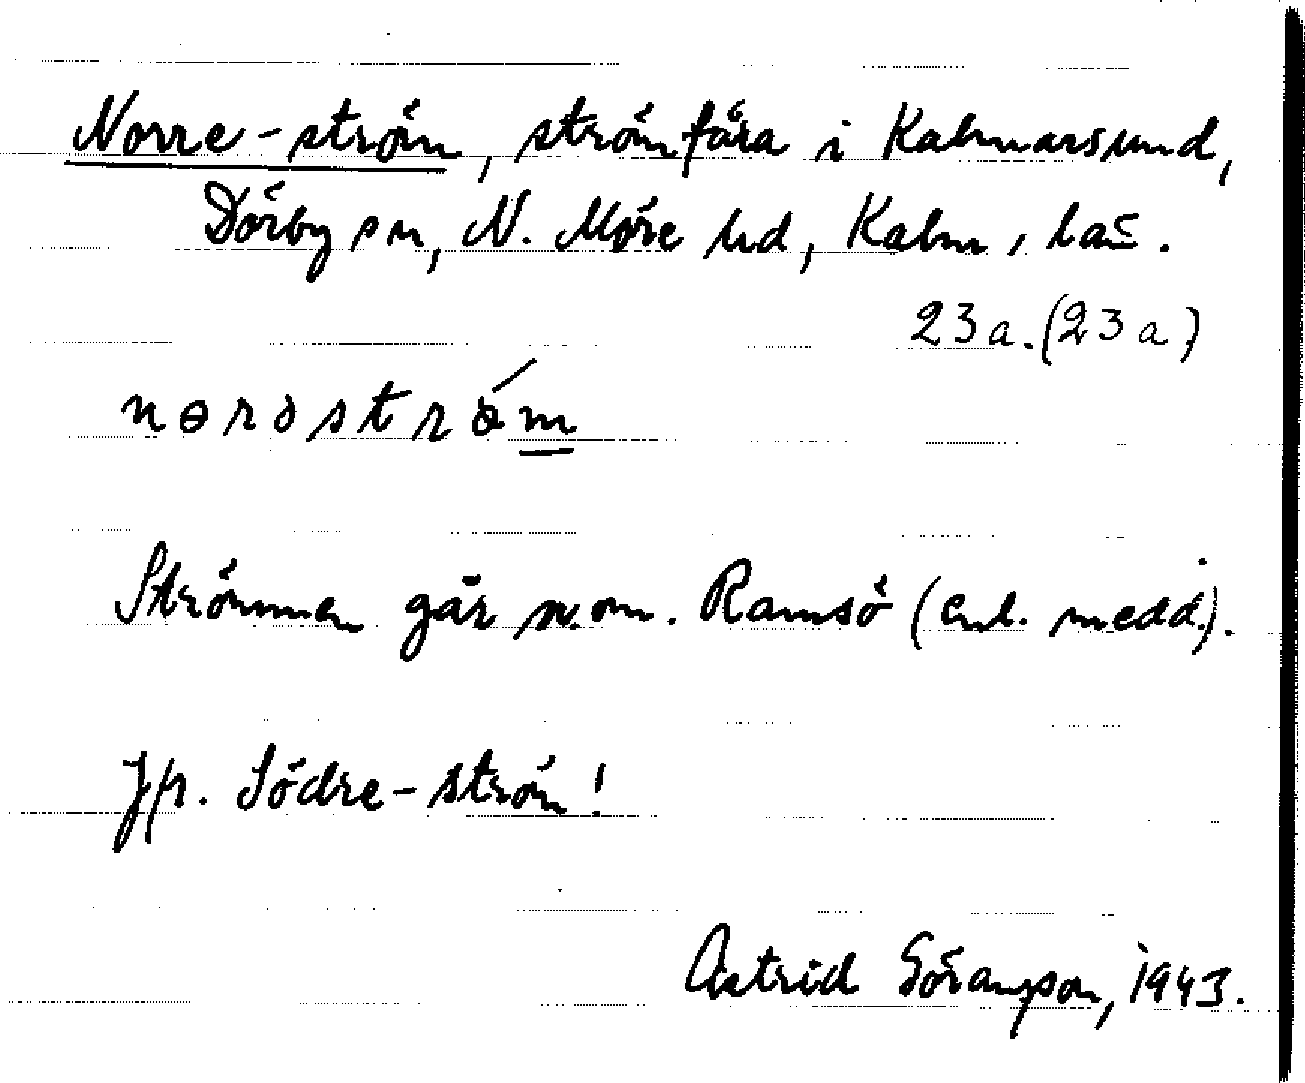 Norre-ström, strömfåra i Kalmarsund,
Dörby sn, N. Möre hd, Kalm. län.
23a. (23a)
nɵrəström
Strömmen går n.om. Ramsö (enl. medd.).
Jfr. Södre-ström!
Astrid Göranson, 1943.